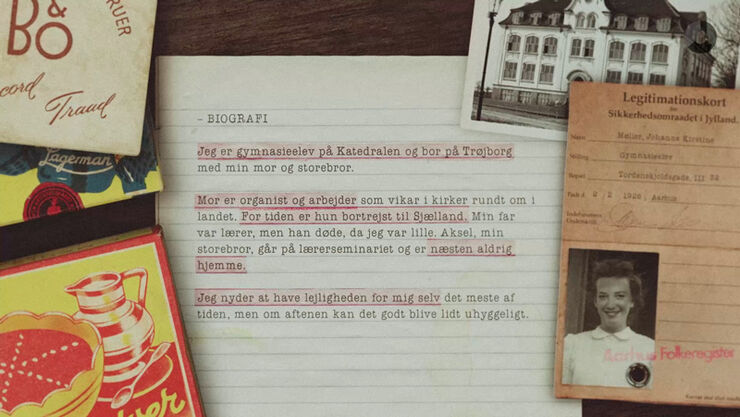 RUER
B&O
cord
Traad
Lageman
– BIOGRAFI
Jeg er gymnasieelev på Katedralen og bor på Trøjborg
med min mor og storebror.
Mor er organist og arbejder som vikar i kirker rundt om i
landet. For tiden er hun bortrejst til Sjælland. Min far
var lærer, men han døde, da jeg var lille. Aksel, min
storebror, går på lærerseminariet og er næsten aldrig
hjemme.
Jeg nyder at have lejligheden for mig selv det meste af
tiden, men om aftenen kan det godt blive lidt uhyggeligt.
Legitimationskort
Sikkerhedsomraadet i Jylland.
Navn Møller, Johanne Kirstine
Stilling Gymnasieelev
Bopæl Tordenskjoldsgade, III 32
Født d. 2/2 1926, Aarhus
Aarhus Folkeregister